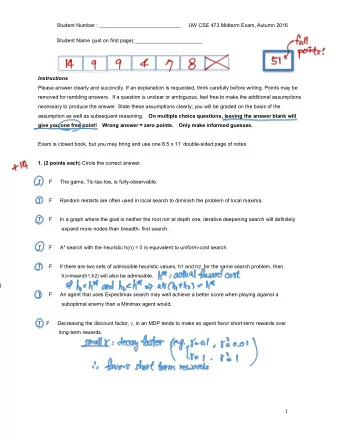 Student Number : UW CSE 473 Midterm Exam, Autumn 2016
Student Name (just on first page)
full points!
14 9 9 4 7 8 51
Instructions
Please answer clearly and succinctly. If an explanation is requested, think carefully before writing. Points may be
removed for rambling answers. If a question is unclear or ambiguous, feel free to make the additional assumptions
necessary to produce the answer. State these assumptions clearly; you will be graded on the basis of the
assumption as well as subsequent reasoning. On multiple choice questions, leaving the answer blank will
give you one free point! Wrong answer = zero points. Only make informed guesses.
Exam is closed book, but you may bring and use one 8.5 x 11" double-sided page of notes
+14
1. (2 points each) Circle the correct answer.
T F The game, Tic-tac-toe, is fully-observable.
T F Random restarts are often used in local search to diminish the problem of local maxima.
T F In a graph where the goal is neither the root nor at depth one, iterative deepening search will definitely
expand more nodes than breadth- first search.
T F A* search with the heuristic h(n) = 0 is equivalent to uniform-cost search.
T F If there are two sets of admissible heuristic values, h1 and h2, for the same search problem, then
h3=mean(h1,h2) will also be admissible. h*: actual forward cost
if h₁<h* and h₂<h* ⇒ ½(h₁+h₂) < h*
T F An agent that uses Expectimax search may well achieve a better score when playing against a
suboptimal enemy than a Minimax agent would.
T F Decreasing the discount factor, γ, in an MDP tends to make an agent favor short-term rewards over
long-term rewards.
small γ : decay faster (e.g. γ=0.1, γ²=0.01
γ=1, γ²=1 )
∴ favors short term rewards
1